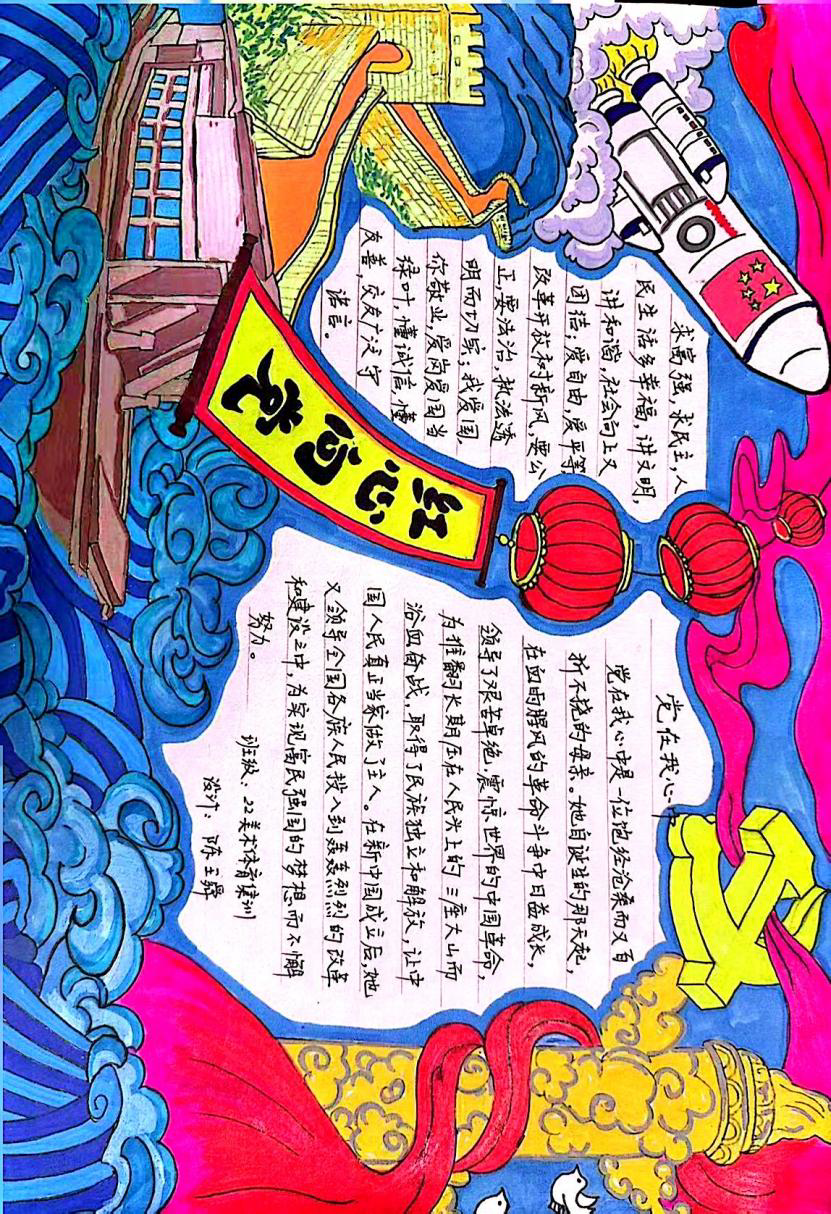 红心向党
求富强，求民主，人
民生活多幸福，讲文明，
讲和谐，社会向上又
团结；爱自由，爱平等，
改革开放树新风，要公
正，要法治，执法透
明而切实；我爱国，
你敬业，爱岗爱国当
绿叶，懂诚信，懂
友善，交友广泛守
诺言。
党在我心中
党在我心中是一位饱经沧桑而又百
折不挠的母亲。她自诞生的那天起，
在血雨腥风的革命斗争中日益成长，
领导了艰苦卓绝，震惊世界的中国革命，
为推翻长期压在人民头上的三座大山而
浴血奋战，取得了民族独立和解放，让中
国人民真正当家做了主人。在新中国成立后，她
又领导全国各族人民投入到轰轰烈烈的改革
和建设之中，为实现富民强国的梦想而不懈
努力。
班级：22美术体育集训
设计：陈